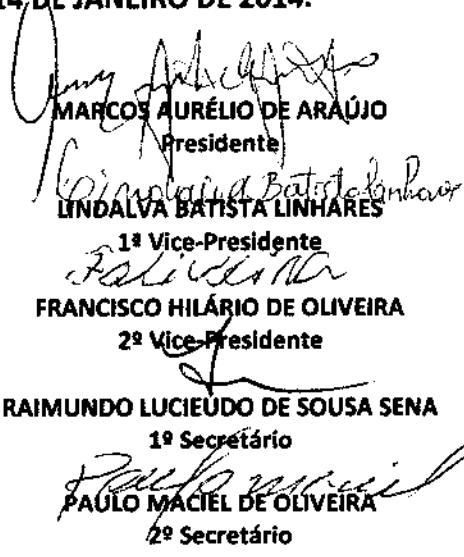 14 DE JANEIRO DE 2014.
MARCOS AURÉLIO DE ARAÚJO
Presidente
Batista Linhares
LINDALVA BATISTA LINHARES
1ª Vice-Presidente
FRANCISCO HILÁRIO DE OLIVEIRA
2º Vice-Presidente
RAIMUNDO LUCIEUDO DE SOUSA SENA
1º Secretário
Paulo Maciel
PAULO MACIEL DE OLIVEIRA
2º Secretário